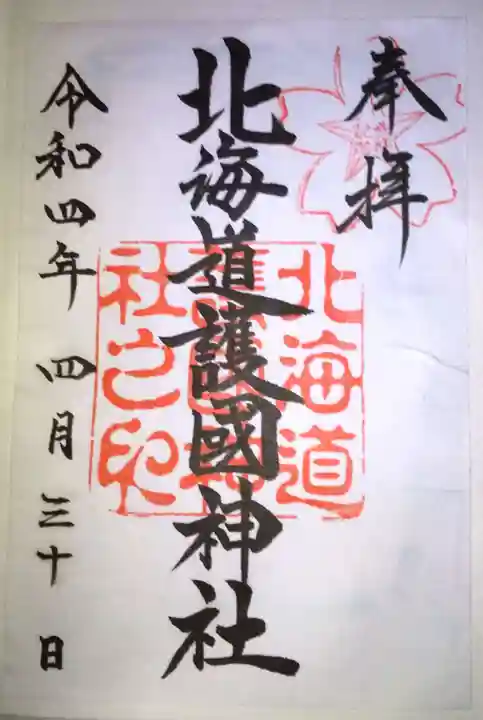 奉拝
北海道護國神社
北海道
護國神
社之印
令和四年 四月三十日